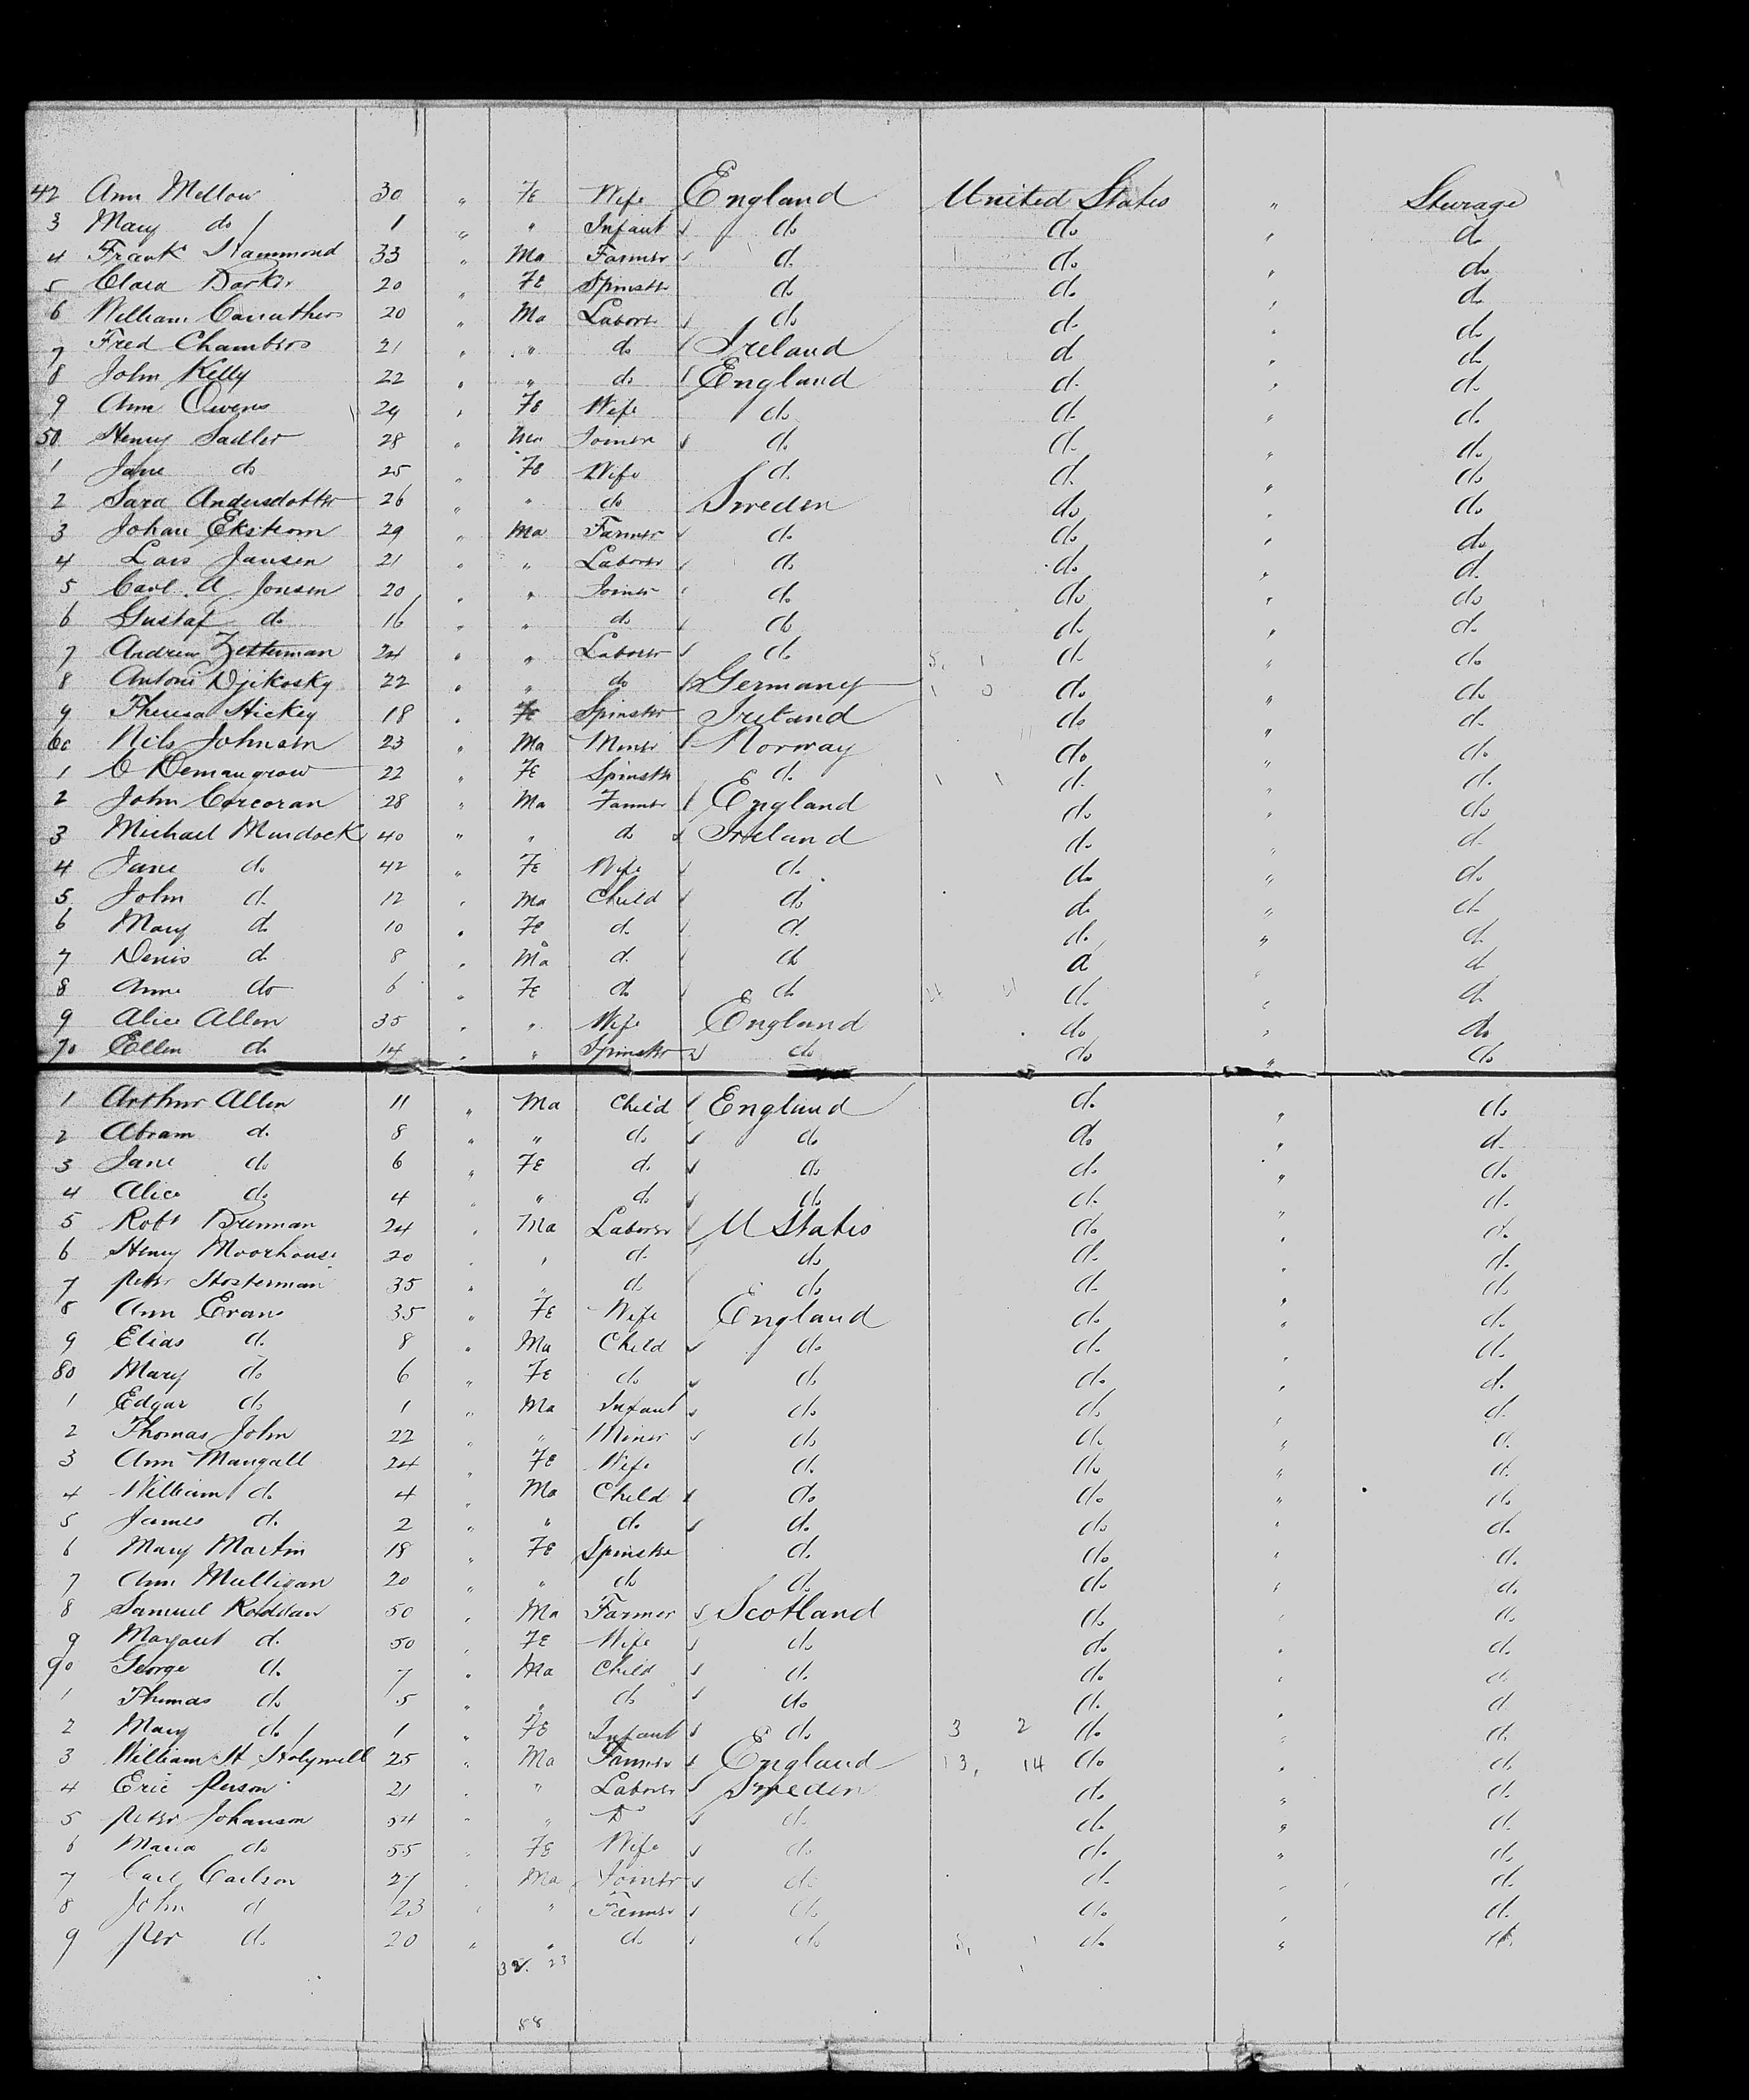 42 Ann Mellow 30 " Fe Wife England United States " Sturage
3 Mary do 1 " " Infant do do " do
4 Frank Hammond 33 " Ma Farmer d. do " do
5 Clara Barker 20 " Fe Spinster do do " do
6 William Carruthers 20 " Ma Labore do do " do
7 Fred Chambers 21 " " do Ireland d " do
8 John Kelly 22 " " do England d. " d.
9 Ann Owens 29 " Fe Wife do d. " do
50 Henry Sadler 28 " Ma Joiner d. d. " do
1 Jane do 25 " Fe Wife d. d. " do
2 Sara Andersdotter 26 " " do Sweden do " do
3 Johan Ekstrom 29 " Ma Farmer do do " do
4 Lars Jansen 21 " " Laborer do do " d.
5 Carl A Jonsen 20 " " Joiner do do " do
6 Gustaf do 16 " " do do do " d.
7 Andrew Zetterman 24 " " Laborer do d. " do
8 Antoni 22 " " do Germany do " do
9 Theresa Hickey 18 " Fe Spinster Ireland do " d.
60 Nils Johnson 23 " Ma Miner Norway do " do
1 22 " Fe Spinstr d. d. " d.
2 John Corcoran 28 " Ma Farmer England do " do
3 Michael Murdock 40 " " do Ireland d. " d.
4 Jane do 42 " Fe Wife do do " do
5 John d. 12 " Ma Child do d. " d.
6 Mary d. 10 " Fe d. d. d. " d.
7 Denis d. 8 " Ma d. do d " d
8 Anne do 6 " Fe do do d. " d.
9 Alice Allen 35 " " Wife England do " do
70 Ellen do 14 " " Spinster do do " do
1 Arthur Allen 11 " Ma Child England d. " do
2 Abram d. 8 " " do do do " d.
3 Jane do 6 " Fe d. do d. " do
4 Alice do 4 " " do do d. " d.
5 Robt Brennan 24 " Ma Laborer U States do " d.
6 Henry Moorhouse 20 " " d. do d. " d.
7 Peter Hosterman 35 " " do do d. " do
8 Ann Evans 35 " Fe Wife England do " d.
9 Elias d. 8 " Ma Child do d. " d.
80 Mary do 6 " Fe do do do " d.
1 Edgar do 1 " Ma Infant do do " d.
2 Thomas John 22 " " Miner do d. " d.
3 Ann Mangall 24 " Fe Wife d. do " d.
4 William d. 4 " Ma Child do do " do
5 James d. 2 " " d. d. do " d.
6 Mary Martin 18 " Fe Spinster d. do " d.
7 Ann Mulligan 20 " " do do do " d.
8 Samuel Roddan 50 " Ma Farmer Scotland do " do
9 Margaret d. 50 " Fe Wife do do " d.
90 George d. 7 " Ma Child d. do " do
1 Thomas do 5 " " do do d. " d
2 Mary do 1 " Fe Infant do 3 2 do " d.
3 William H Holywell 25 " Ma Farmer England 13, 14 do " do
4 Eric Person 21 " " Laborer Sweden d. " d.
5 Peter Johanson 54 " " Do d. do " d.
6 Maria do 55 " Fe Wife do d. " do
7 Carl Carlson 27 " Ma Joiner do d. " d.
8 John d 23 " " Farmer do do " d.
9 Per do 20 " " do do do " do
32. 23
88